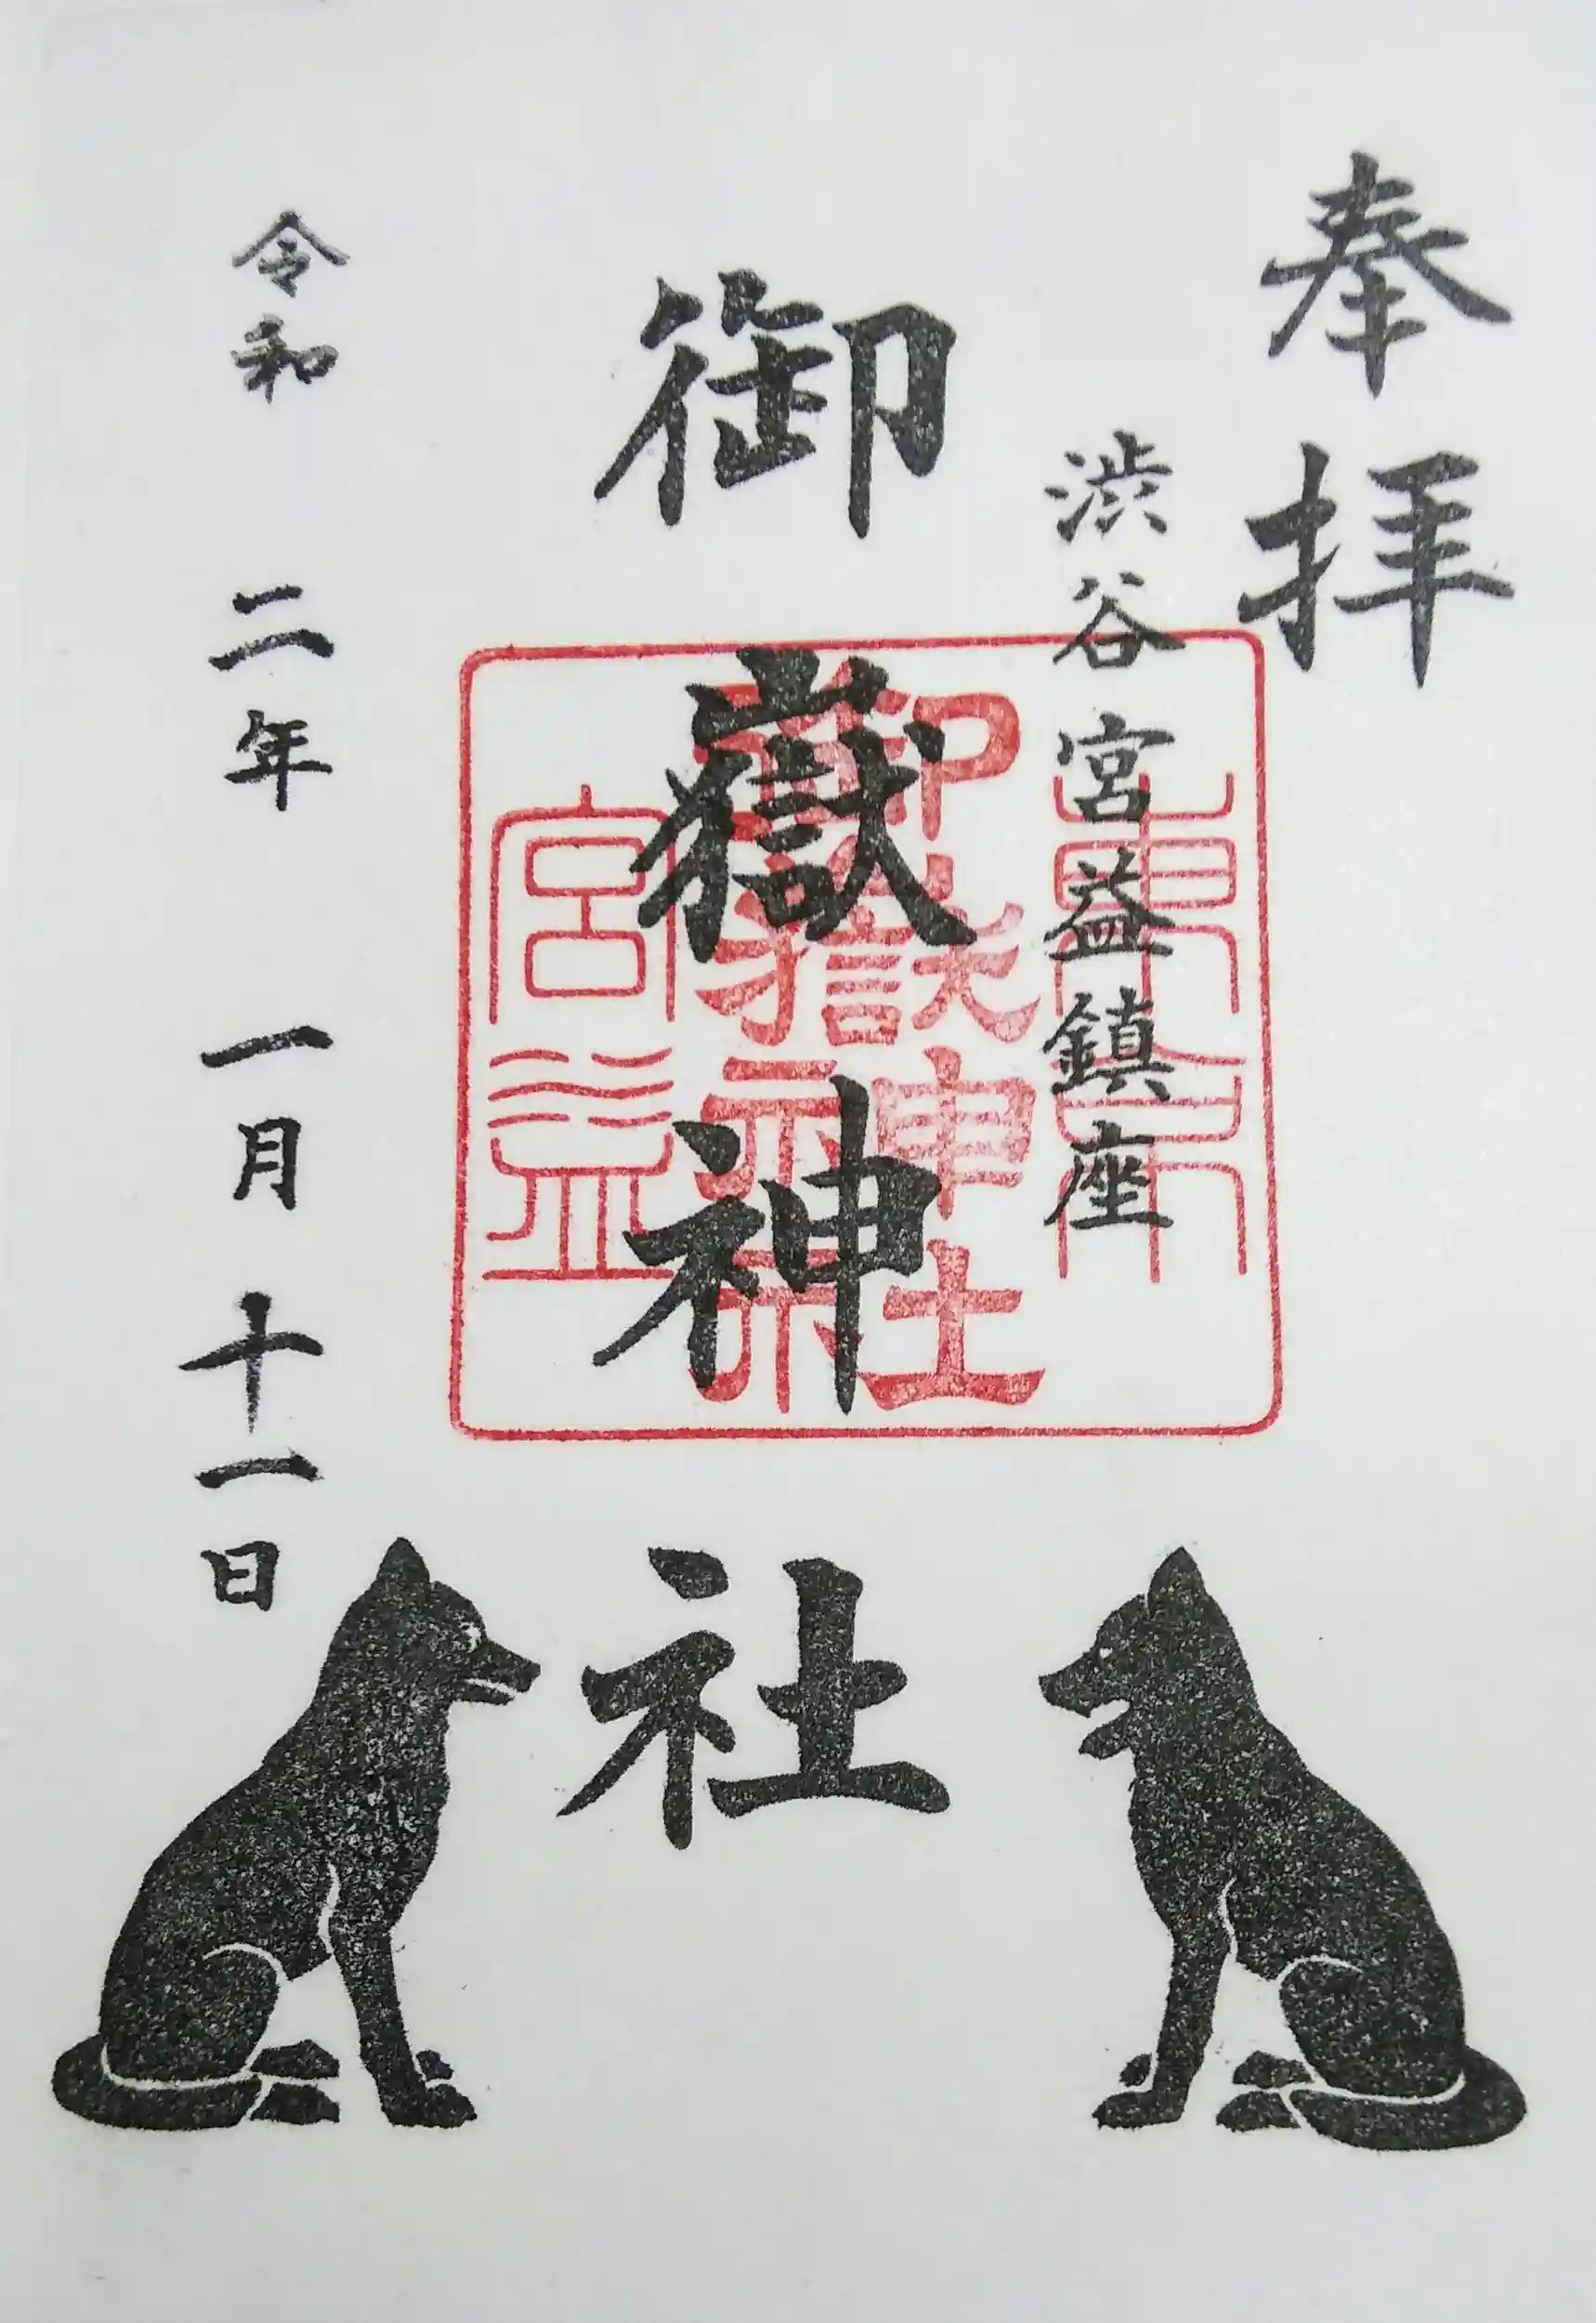 奉拝
渋谷宮益鎮座
御嶽神社
東京
御嶽神社
宮益
令和二年一月十一日